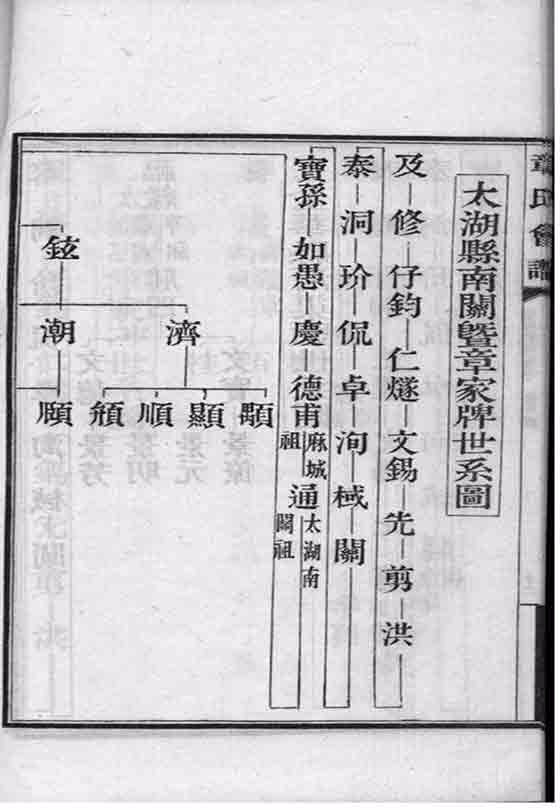 章氏會譜
太湖縣南關暨章家牌世系圖
及 修 仔鈞 仁燧 文錫 先 剪 洪
泰 洞 玠 侃 卓 洵 棫 關
寶孫 如愚 慶 德甫 麻城祖 通 太湖南關祖
鉉
濟 潮
顯 順 頎 頤